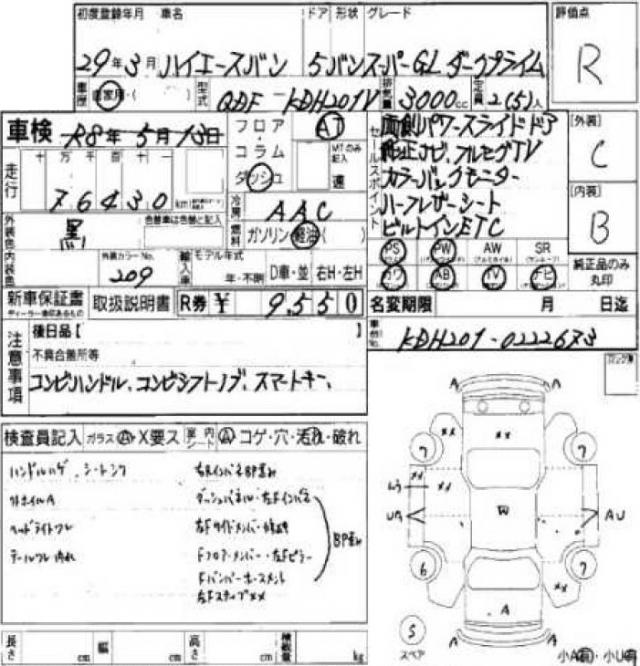 初度登録年月 車名 ドア 形状 グレード 評価点
29年3月 ハイエースバン 5 バン スーパーGL ダークプライム R
車歴 自家用・( ) 型式 QDF-KDH201V 排気量 3000cc 定員 2(5)人
車検 R8年5月13日
フロア AT
コラム MTのみ記入
ダッシュ 速
走行 十 万 千 百 十 一
76430 km
冷房 AAC
燃料 ガソリン・軽油・( )
外装色 黒 色替車は色替と記入
内装色 外装カラーNo. 209
輸入車 モデル年式 年・不明 D車・並 右H・左H
セールスポイント
両側パワースライドドア
純正ナビ、フルセグTV
カラーバックモニター
ハーフレザーシート
ビルトインETC
[外装] C
[内装] B
PS PW AW SR
カワ AB TV ナビ
純正品のみ丸印
新車保証書 取扱説明書 R券 ¥ 9550
名変期限 月 日迄
車台No. KDH201-0222673
注意事項
後日品【 】
不具合箇所等
コンビハンドル、コンビシフトノブ、スマートキー、
検査員記入 ガラス A・X要ス 室内シート A・コゲ・穴・汚れ・破れ
ハンドルハゲ、シートシワ
ホイルA
ヘッドライトワレ
テールワレ
ダッシュパネル・左Fインパネ
左Fサイドメンバー・修正
Fフロアーメンバー・左Fピラー
左FステップXX
BP歪み
A A
7 XX XX 7
XX XX
UA W AU
6 XX 7
A
S
スペア A A
長さ cm 幅 cm 高さ cm 積載量 kg
小A有・小U有